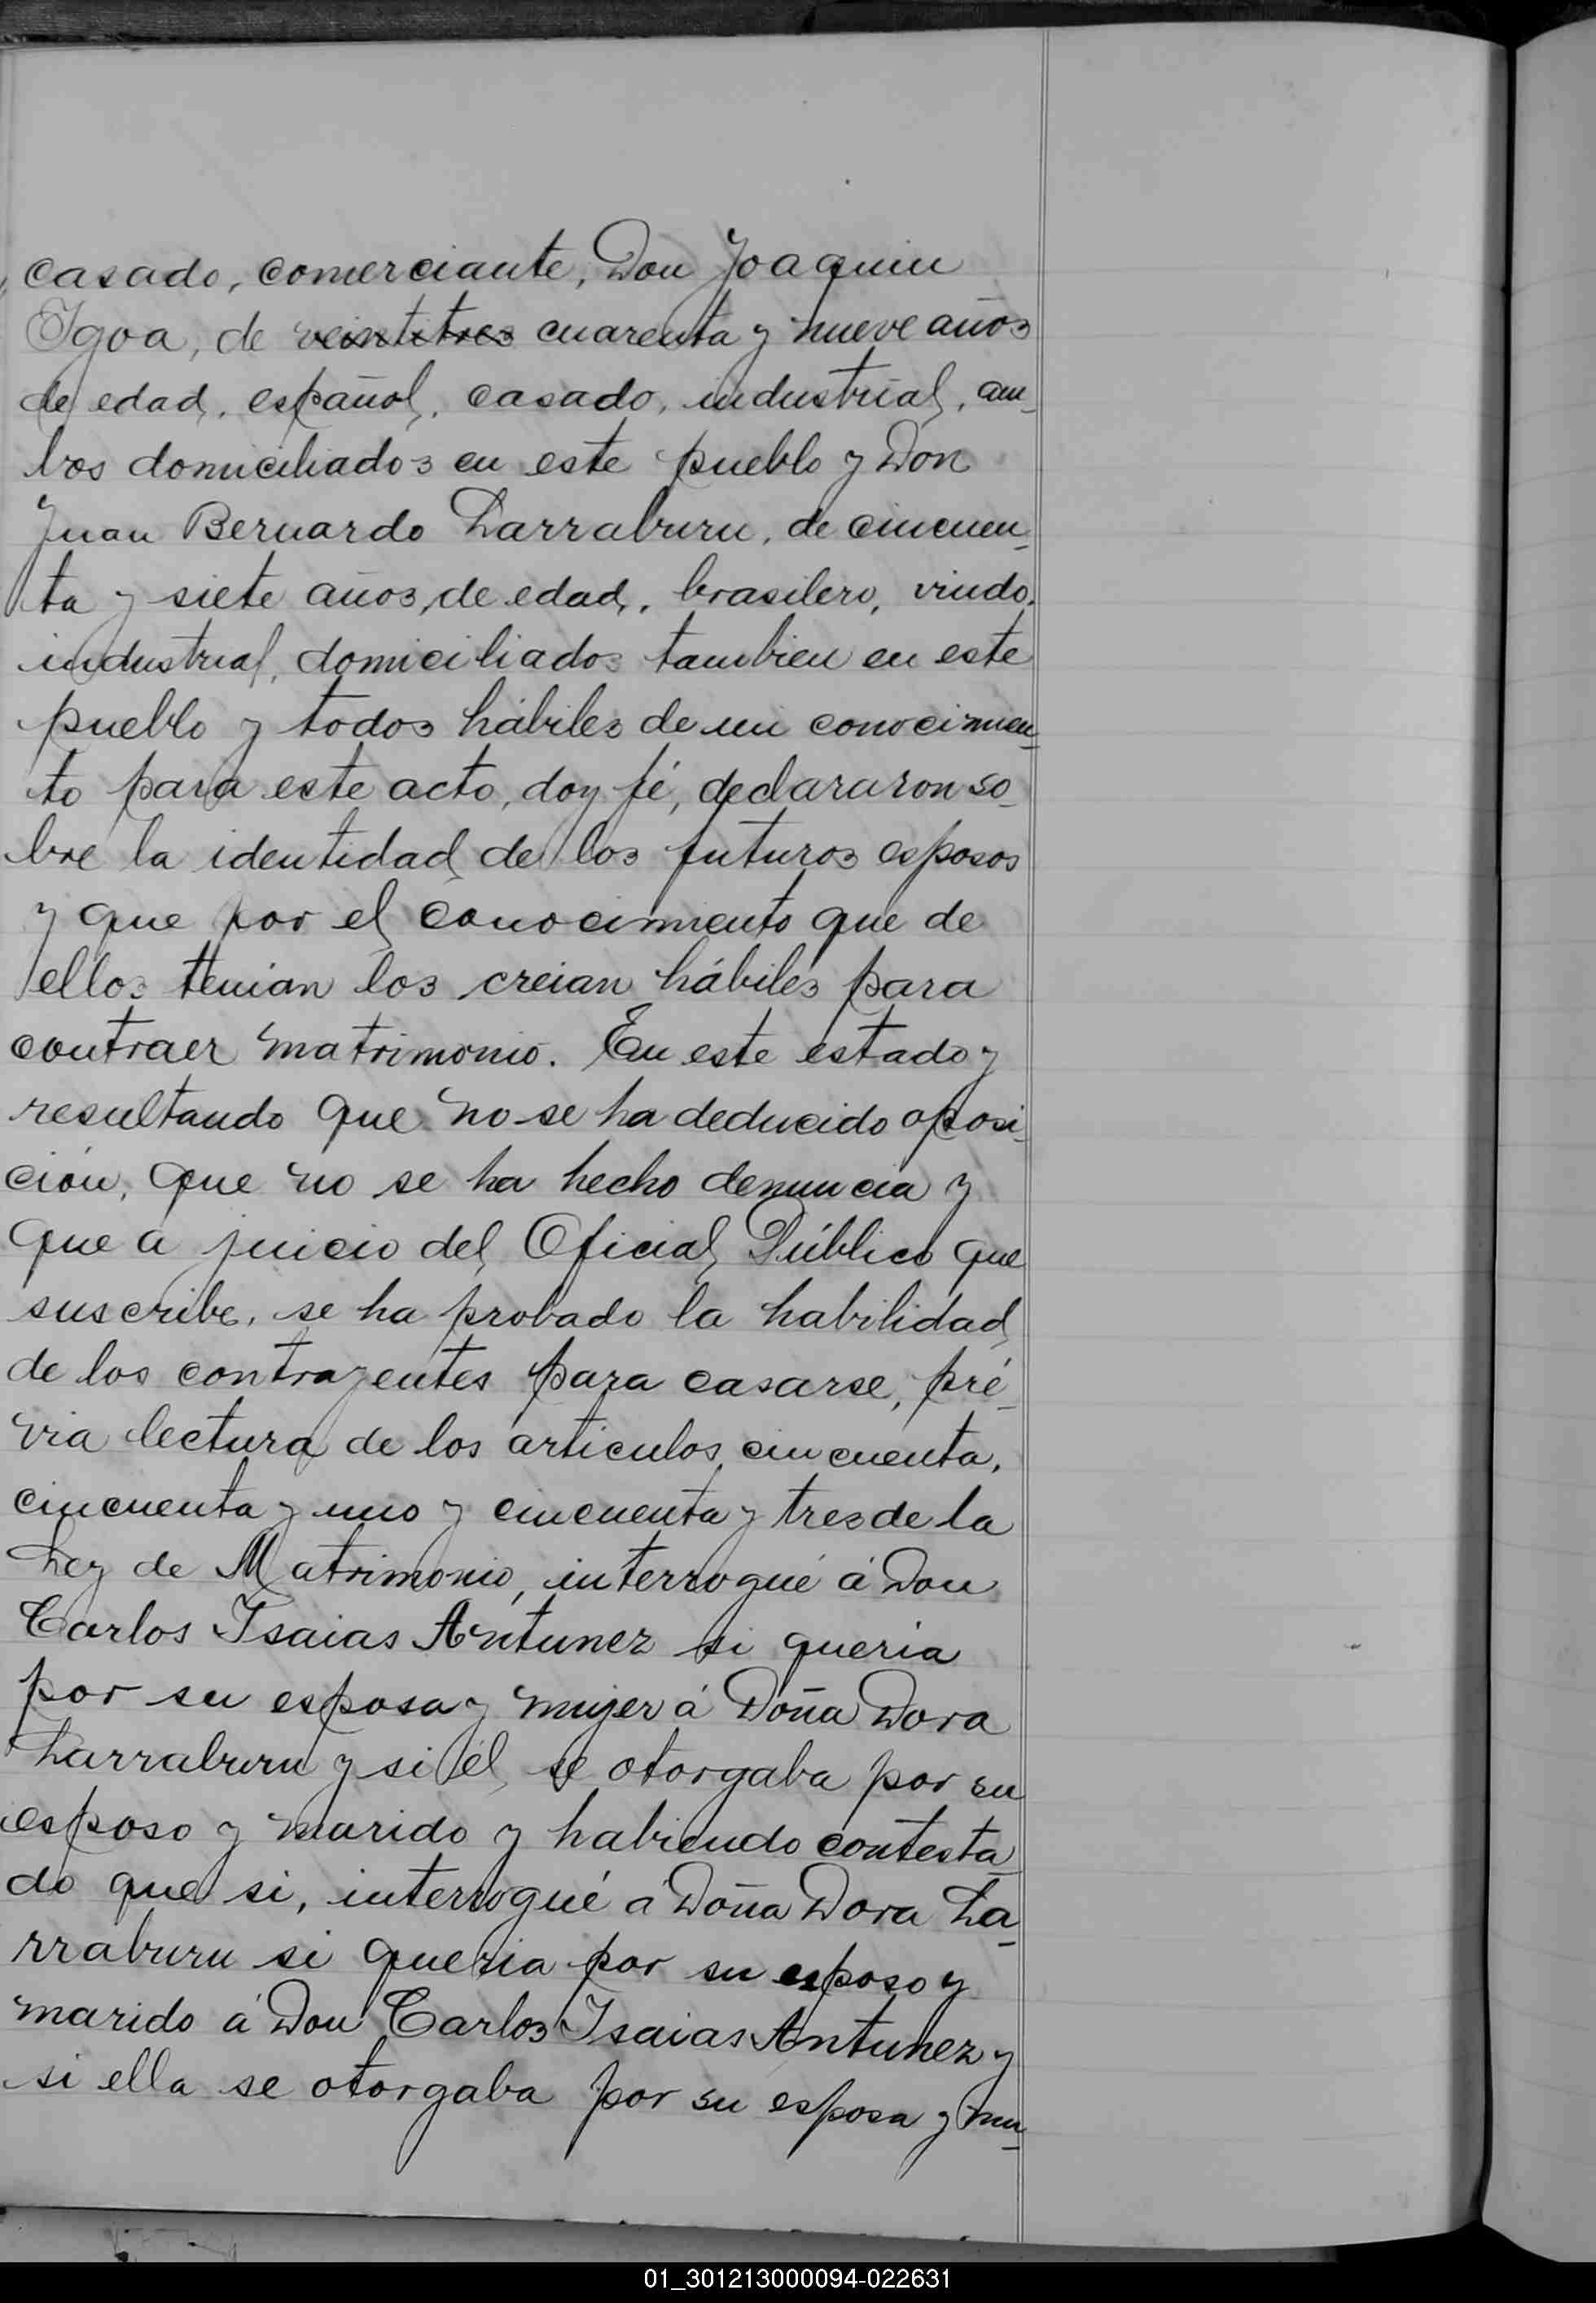 casado, comerciante, Don Joaquin
Igoa, de veintitres cuarenta y nueve años
de edad, español, casado, industrial, am-
bos domiciliados en este pueblo y Don
Juan Bernardo Larraburu, de cincuen-
ta y siete años, de edad, brasilero, viudo,
industrial, domiciliados tambien en este
pueblo y todos hábiles de mi conocimien-
to para este acto, doy fé, declararon so-
bre la identidad de los futuros esposos
y que por el conocimiento que de
ellos tenian los creian hábiles para
contraer matrimonio. En este estado y
resultando que no se ha deducido oposi-
ción, que no se ha hecho denuncia y
que a juicio del Oficial Público que
suscribe, se ha probado la habilidad
de los contrayentes para casarse, pré-
via lectura de los articulos, cincuenta,
cincuenta y uno y cincuenta y tres de la
Ley de Matrimonio, interrogué á Don
Carlos Isaias Antunez si queria
por su esposa y mujer á Doña Dora
Larraburu y si él se otorgaba por su
esposo y marido y habiendo contesta-
do que si, interrogué á Doña Dora La-
rraburu si queria por su esposo y
marido á Don Carlos Isaias Antunez y
si ella se otorgaba por su esposa y mu-
01_301213000094-022631